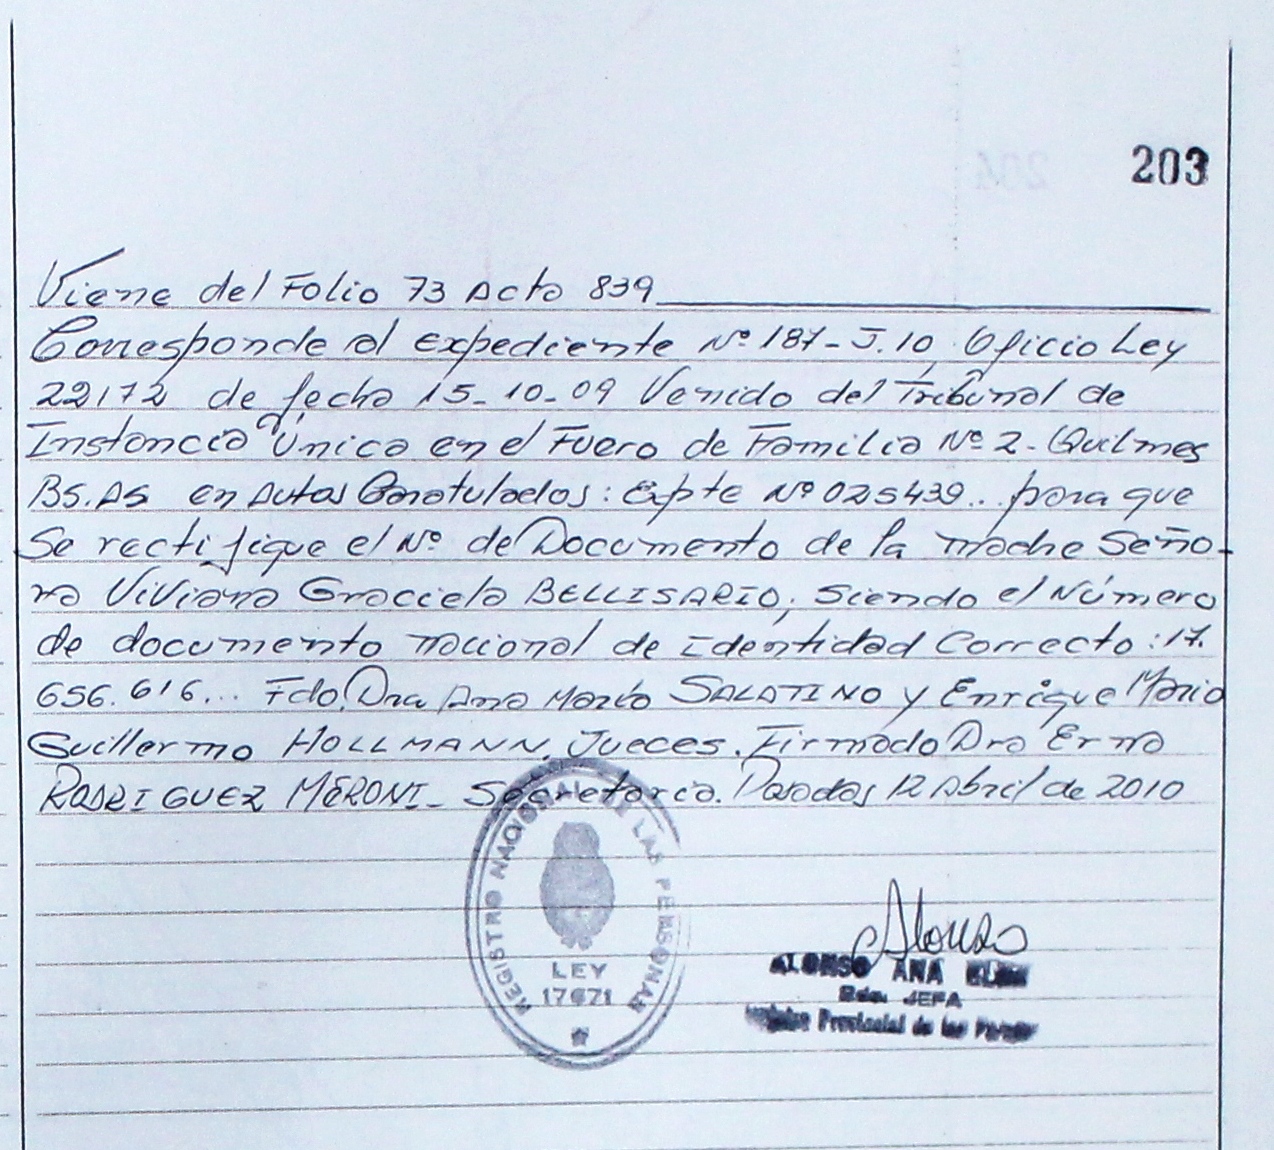 203
Viene del Folio 73 Acta 839
Corresponde al Expediente Nº 187-J.10, Oficio Ley
22172 de fecha 15-10-09 Venido del Tribunal de
Instancia Única en el Fuero de Familia Nº 2- Quilmes
BS.AS en Autos Caratulados: Expte Nº 025439.. para que
Se rectifique el Nº de Documento de la madre Seño-
ra Viviana Graciela BELLISARIO, siendo el Número
de documento nacional de Identidad Correcto: 17.
656.616... Fdo. Dra Ana María SALATINO y Enrique Mario
Guillermo HOLLMANN, Jueces. Firmado Dra Erna
RODRIGUEZ MERONI- Secretaria. Posadas 12 Abril de 2010
REGISTRO NACIONAL DE LAS PERSONAS
LEY
17671
Alonso
ALONSO ANA
JEFA
Provincial de las